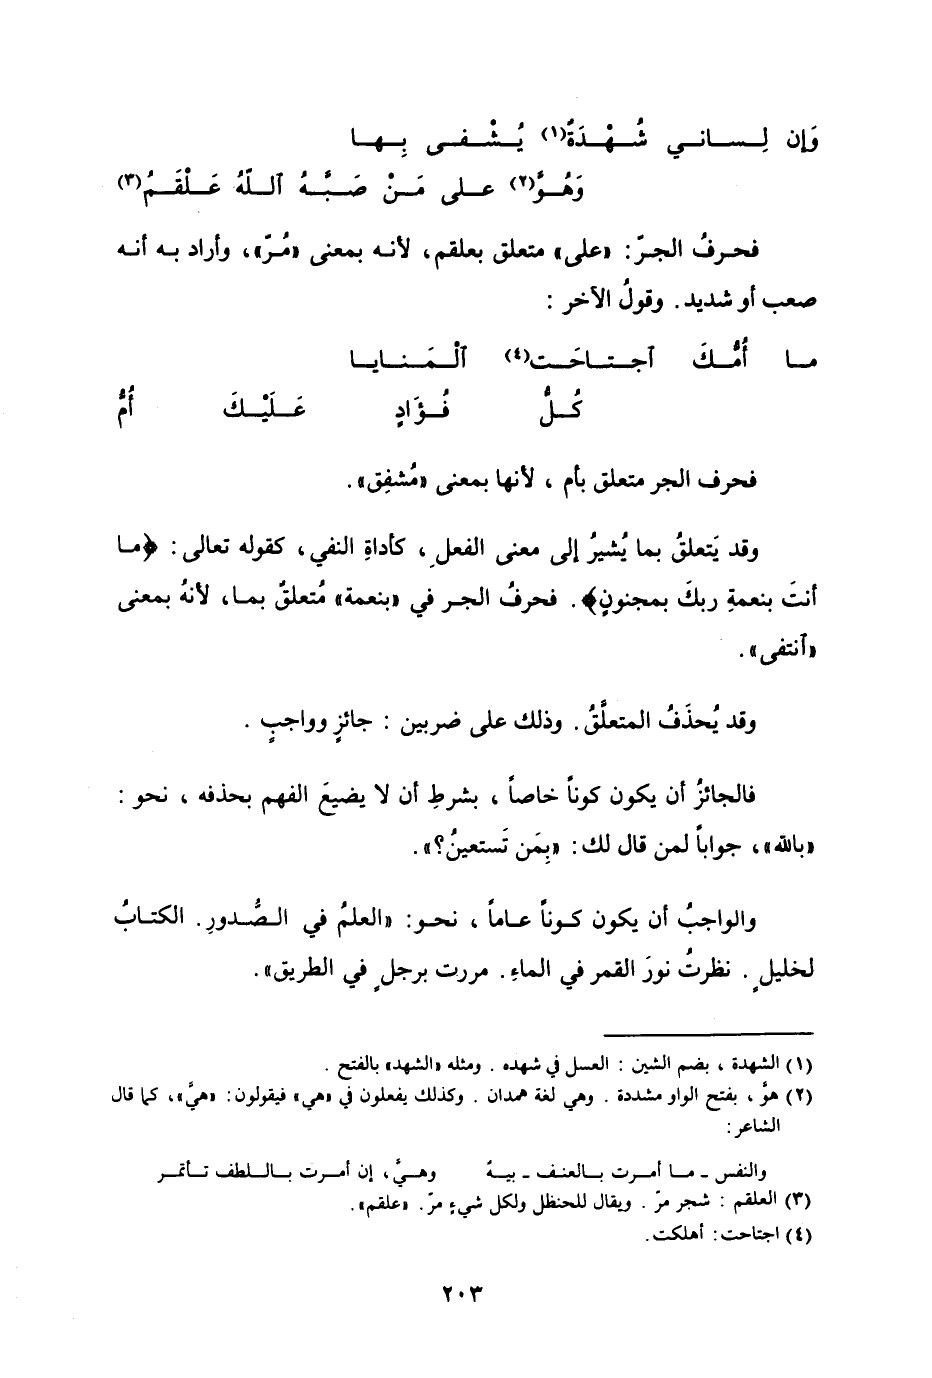 وَإن لِـسـاني شُـهْـدَةٌ(١) يُـشْـفـى بِـهـا
وَهُـوَّ(٢) عـلى مَـنْ صَـبَّـهُ ٱلـلّهُ عَـلْقَـمُ(٣)
فحـرفُ الجـرّ: «على» متعلق بعلقم، لأنـه بمعنى «مُـرّ»، وأراد بـه أنـه
صعب أو شديد. وقولُ الآخر :
مـا أُمُّـكَ ٱجـتـاحَـت(٤) ٱلْـمَـنـايـا
كُـلُّ فُـؤَادٍ عَـلَيْـكَ أُمُّ
فحرف الجر متعلق بأم ، لأنها بمعنى «مُشفِق».
وقد يَتعلقُ بما يُشيرُ إلى معنى الفعلِ ، كأداةِ النفي، كقوله تعالى: ﴿مـا
أنتَ بنعمةِ ربكَ بمجنونٍ﴾. فحرفُ الجـر في «بنعمة» مُتعلقٌ بمـا، لأنهُ بمعنى
«ٱنتفى».
وقد يُحذَفُ المتعلَّقُ. وذلك على ضربين : جائزٍ وواجبٍ .
فالجائزُ أن يكون كوناً خاصاً ، بشرطِ أن لا يضيعَ الفهم بحذفه ، نحو :
«بالله»، جواباً لمن قال لك: «بِمَن تَستعينُ؟».
والواجبُ أن يكون كـوناً عـاماً ، نحـو: «العلمُ في الـصُّـدورِ. الكتـابُ
لخليلٍ . نظرتُ نورَ القمر في الماءِ. مررت برجلٍ في الطريق».
(١) الشهدة ، بضم الشين : العسل في شهده . ومثله «الشهد» بالفتح .
(٢) هوَّ ، بفتح الواو مشددة . وهي لغة همدان . وكذلك يفعلون في «هي» فيقولون: «هيَّ»، كما قال
الشاعر:
والنفس ـ مـا أمـرت بـالعنـف ـ بيـةٌ وهـيَّ، إن أمـرت بـالـلطف تـأتمـر
(٣) العلقم : شجر مرّ . ويقال للحنظل ولكل شيءٍ مرّ. «علقم».
(٤) اجتاحت: أهلكت.
٢٠٣